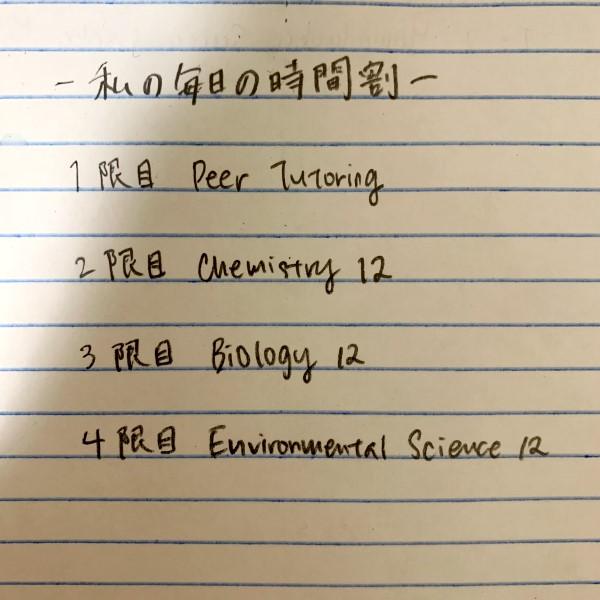 - 私の毎日の時間割 -
1限目 Peer Tutoring
2限目 Chemistry 12
3限目 Biology 12
4限目 Environmental Science 12